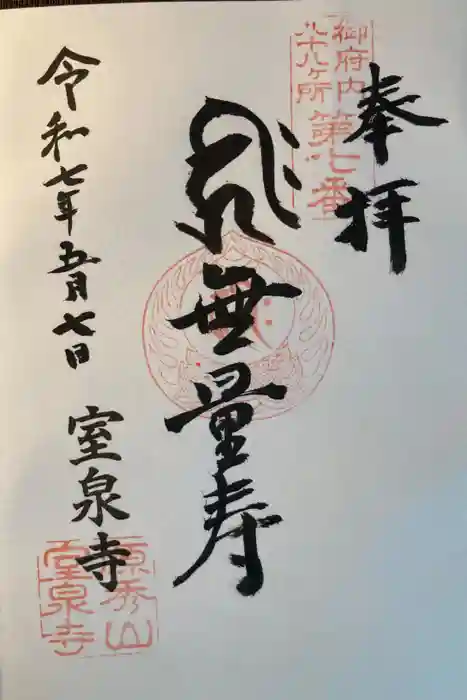 奉拝
御府内
八十八ヶ所
第七番
無量寿
令和七年五月七日
室泉寺
源秀山
室泉寺